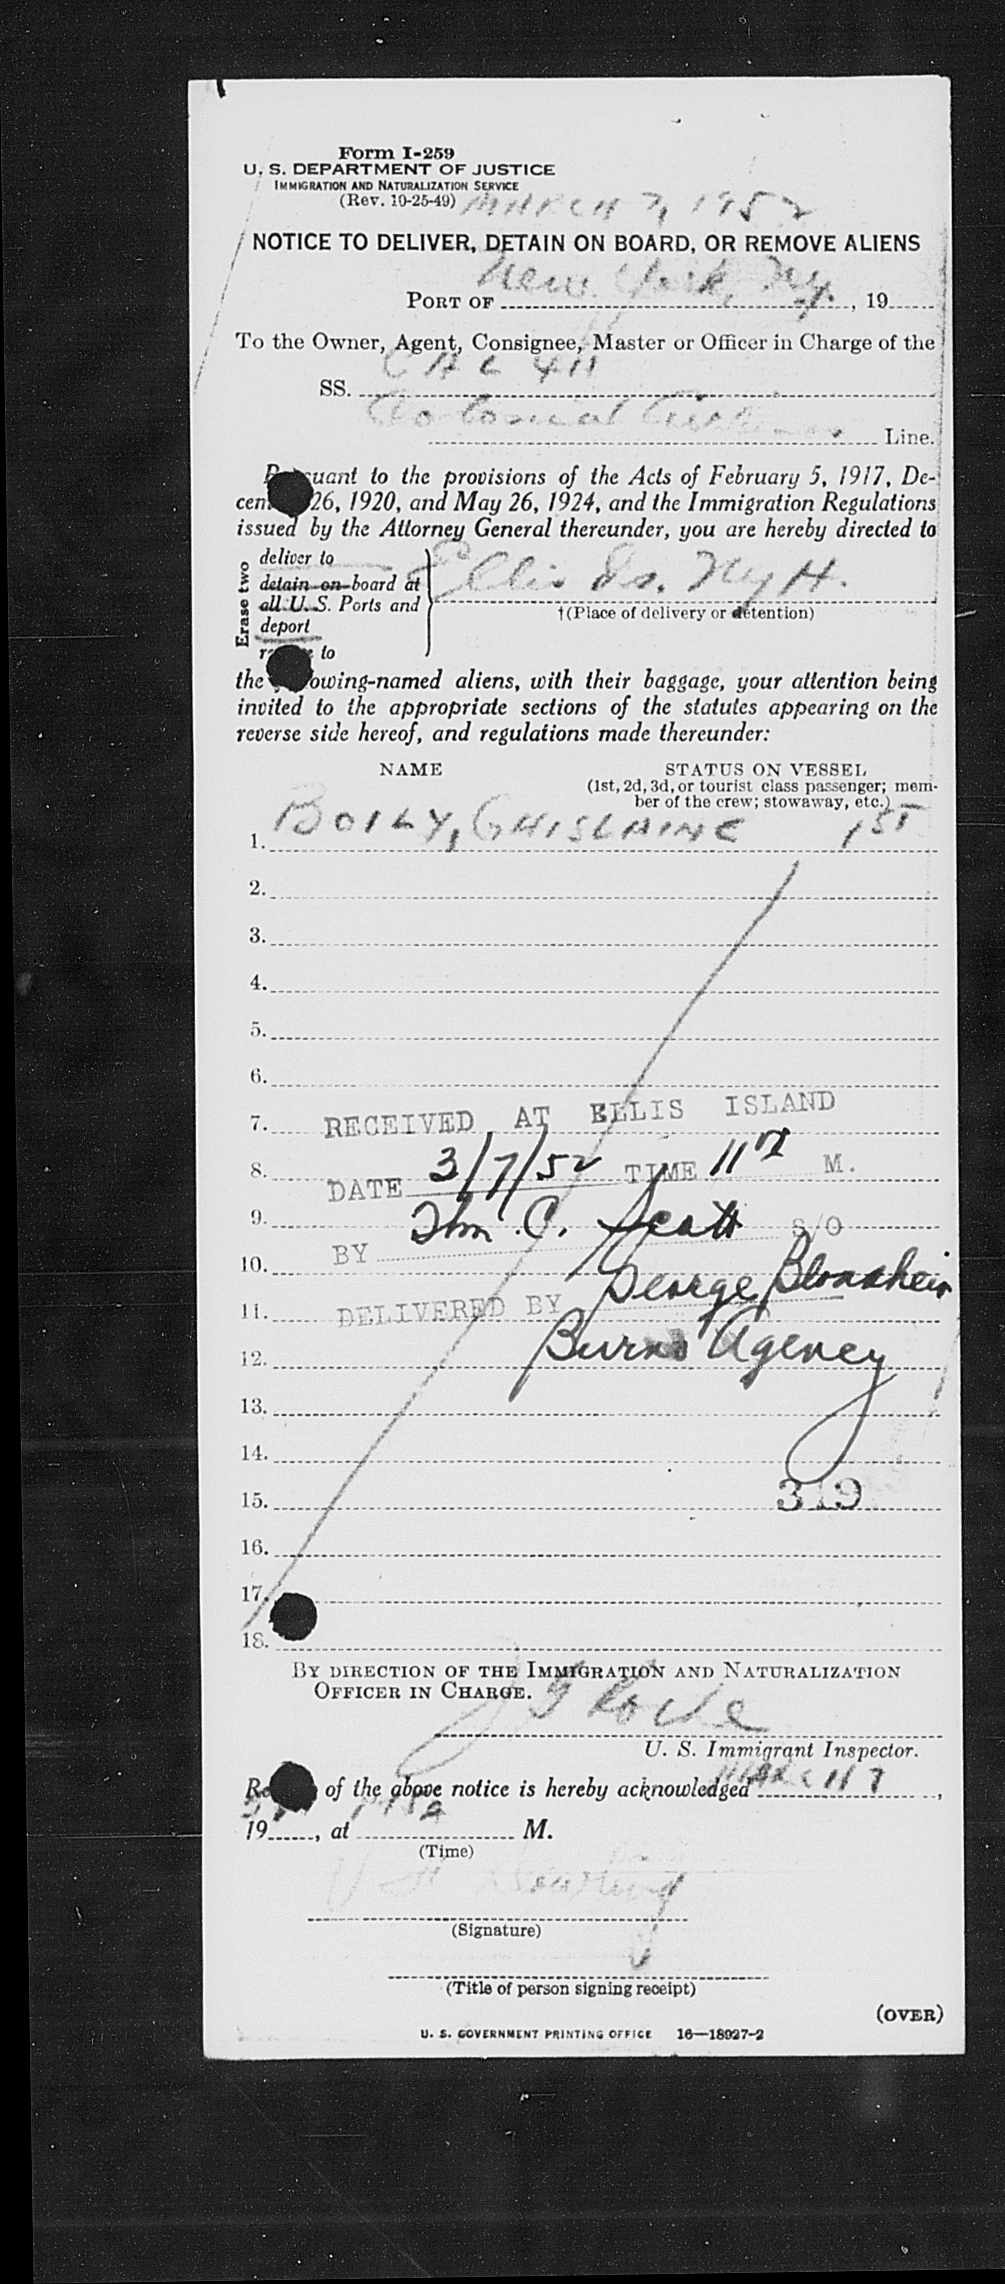 Form I-259
U. S. DEPARTMENT OF JUSTICE
IMMIGRATION AND NATURALIZATION SERVICE
(Rev. 10-25-49) MARCH 7, 1952
NOTICE TO DELIVER, DETAIN ON BOARD, OR REMOVE ALIENS
New York, Ny.
PORT OF , 19
To the Owner, Agent, Consignee, Master or Officer in Charge of the
CAL
SS.
Colonial Airlines
Line.
Pursuant to the provisions of the Acts of February 5, 1917, De-
cember 26, 1920, and May 26, 1924, and the Immigration Regulations
issued by the Attorney General thereunder, you are hereby directed to
Erase two
deliver to
detain on board at
all U. S. Ports and
deport
remove to
Ellis Is. NyH.
†(Place of delivery or detention)
the following-named aliens, with their baggage, your attention being
invited to the appropriate sections of the statutes appearing on the
reverse side hereof, and regulations made thereunder:
NAME STATUS ON VESSEL
(1st, 2d, 3d, or tourist class passenger; mem-
ber of the crew; stowaway, etc.)
1. BOILY, GHISLAINE 1ST
2.
3.
4.
5.
6.
7. RECEIVED AT ELLIS ISLAND
8. DATE 3/7/52 TIME 11 M.
9. BY Thm. C. Scott S/O
10.
11. DELIVERED BY George
12. Burns Agency
13.
14.
15. 319
16.
17.
18.
BY DIRECTION OF THE IMMIGRATION AND NATURALIZATION
OFFICER IN CHARGE.
U. S. Immigrant Inspector.
Receipt of the above notice is hereby acknowledged MARCH 7,
19 , at M.
(Time)
(Signature)
(Title of person signing receipt)
(OVER)
U. S. GOVERNMENT PRINTING OFFICE 16—18927-2